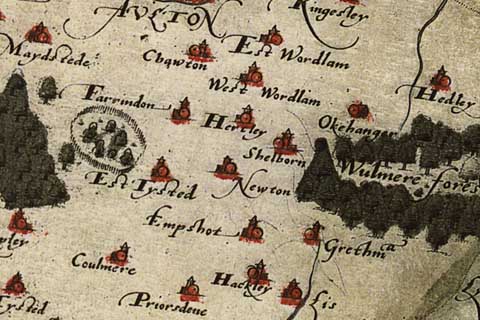 AULTON
Kingesley
Maydstede
Chawton
Est Wordlam
West Wordlam
Hedley
Farrindon
Hertley
Okehanger
Shelborn
Wulmere fores
Est Tysted
Newton
Empshot
Grethm
Coulmere
Hackley
Priorsdene
Lis
Tysted